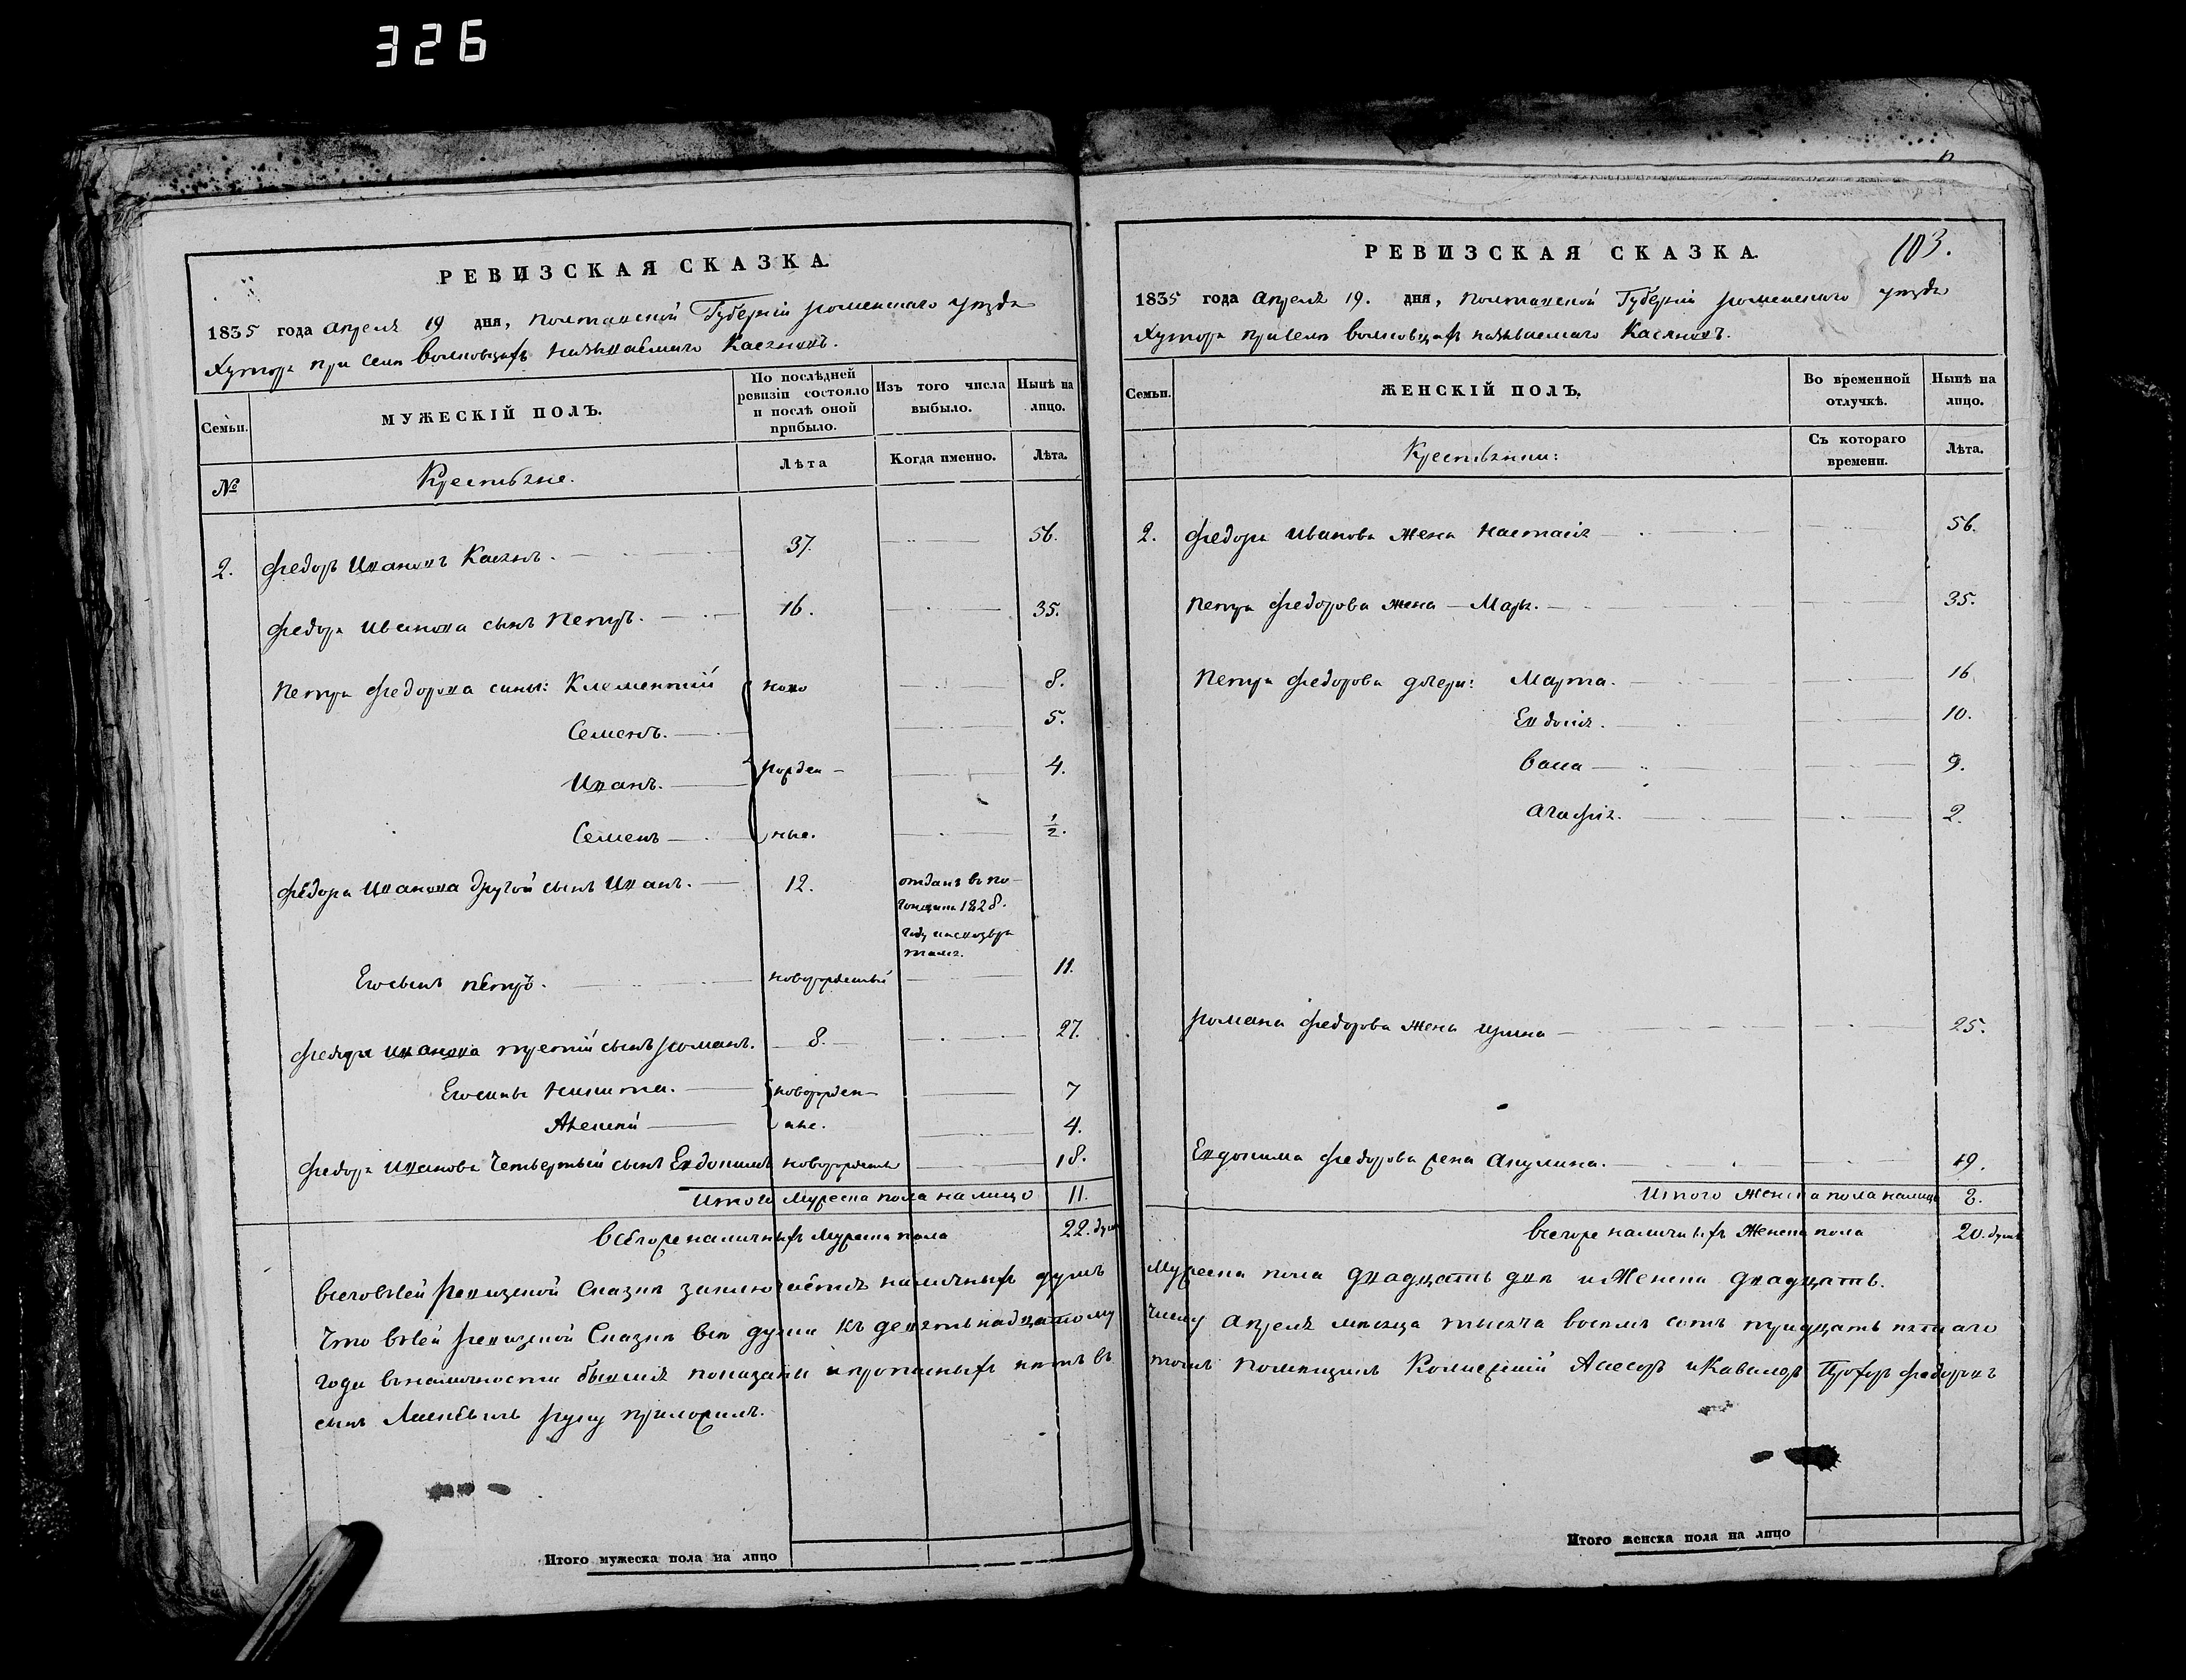 326
РЕВИЗСКАЯ СКАЗКА.
1835 года Апреля 19 дня, Полтавской Губерніи роменскаго уезда
Хутора при селе Волковцахъ называемаго Касяновъ.
Семьи.
МУЖЕСКІЙ ПОЛЪ.
По послѣдней ревизіи состояло и послѣ оной прибыло.
Изъ того числа выбыло.
Нынѣ на лицо.
№
Крестьяне.
Лѣта
Когда именно.
Лѣта.
2. Федоръ Ивановъ Касянъ. 37. 56.
Федора Иванова сынъ Петръ. 16. 35.
Петра Федорова сины: Климентій ново 8.
Семенъ. 5.
Иванъ. рожден- 4.
Семенъ ные. 1/2.
Федора Иванова другой сынъ Иванъ. 12. отданъ въ по-
гонщики 1828.
году и не возвра
тился.
Его сынъ Петръ. новорожденный 11.
Федора Иванова третій сынъ Романъ. 8. 27.
Его сины Никита. новорожден- 7
Алексѣй ные. 4.
Федора Иванова Четвертый сынъ Евдокимъ новорожденъ 18.
Итого Мужеска пола на лицо 11.
Всего же наличныхъ Мужеска пола 22. душ
Всего въ сей ревизской Сказке заключается наличныхъ душъ
Что въ сей ревизской Сказке все души къ девятьнадцатому
года въ наличности бывшие показаны и прописныхъ нетъ въ
сынъ руку приложилъ.
Итого мужеска пола на лицо
РЕВИЗСКАЯ СКАЗКА.
103.
1835 года Апреля 19. дня, Полтавской Губерніи роменскаго уезда
Хутора при селе Волковцахъ называемаго Касяновъ.
Семьи.
ЖЕНСКІЙ ПОЛЪ.
Во временной отлучкѣ.
Нынѣ на лицо.
Крестьянки:
Съ котораго времени.
Лѣта.
2. Федора Иванова жена Настасія 56.
Петра Федорова жена - Марья. 35.
Петра Федорова дочери: Марта. 16
Евдокія. 10.
Васса 9.
Агафія. 2.
Романа Федорова жена Ирина 25.
Евдокима Федорова жена Акулина. 19.
Итого Женска пола на лицо 8.
Всего же наличныхъ Женска пола 20. душъ
Мужеска пола двадцать две и Женска двадцать.
числу Апреля месяца тысяча восемь сотъ тридцать пятаго
томъ Помещикъ Колежскій Асесоръ и Кавалеръ Федоровъ
Итого женска пола на лицо